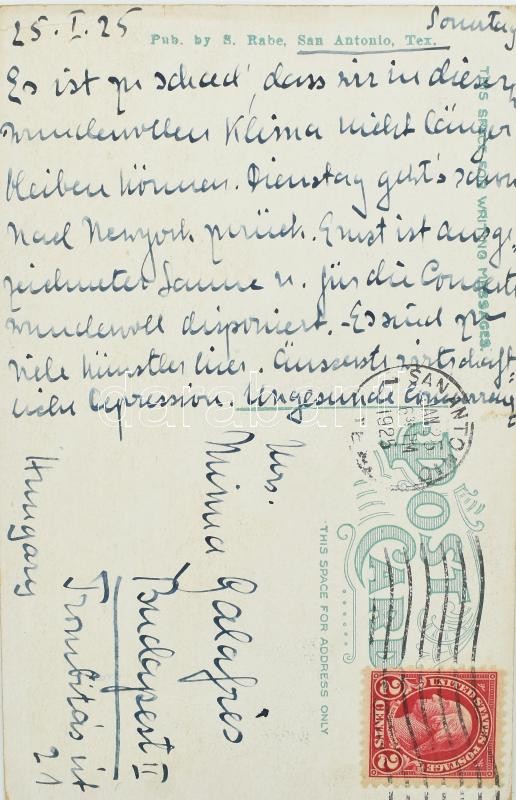 25.I.25
Sonntag
Pub. by S. Rabe, San Antonio, Tex.
Es ist zu schad', dass wir in diesem
wundervollen Klima nicht länger
bleiben können. Dienstag geht's schon
nach Newyork zurück. Ernst ist ausge-
zeichneter Laune u. für die Concerte
wundervoll disponiert. - Es sind zu
viele Künstler hier. Äusserste wirtschaft-
liche Depression. Ungesunde Concurrenz
THIS SPACE FOR WRITING MESSAGES.
SAN ANTONIO
JAN 25
1925
TEX
POST CARD
THIS SPACE FOR ADDRESS ONLY
Mrs.
Mima Galafrés
Budapest II
Trombitás út
21
Hungary
UNITED STATES POSTAGE
2 CENTS 2
darabanth